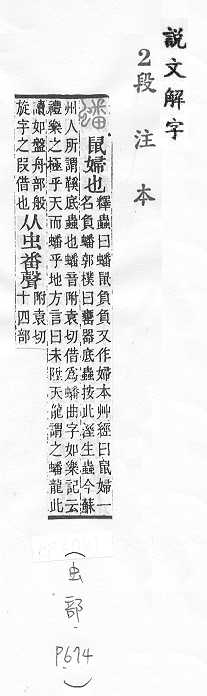 説文解字
2段注本
蟠 鼠婦也
釋蟲曰蟠鼠負負又作婦本艸經曰鼠婦一
名負蟠郭樸曰罋器底蟲按此溼生蟲今蘇
州人所謂鞵底蟲也蟠音附袁切借爲蟠曲字如樂記云
禮樂之極乎天而蟠乎地方言曰未陞天龍謂之蟠龍此
讀如盤舟部般
旋字之叚借也
从虫番聲
附袁切
十四部
(虫部 P674)